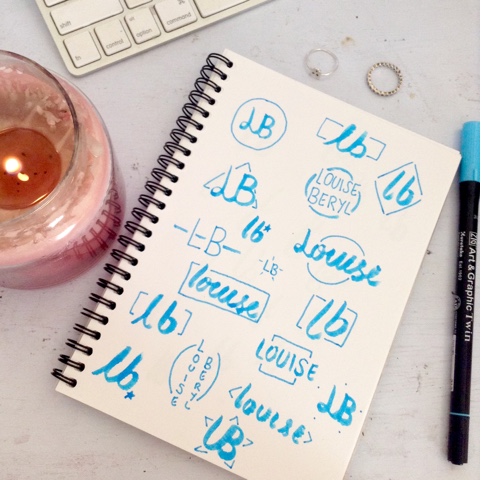 fn
control
option
command
LB
lb
LOUISE
BERYL
lb
LB
lb
-LB-
-LB-
Louise
louise
lb
lb
LOUISE
lb
LOUISE
BERYL
<louise>
LB
LB
Art & Graphic Twin